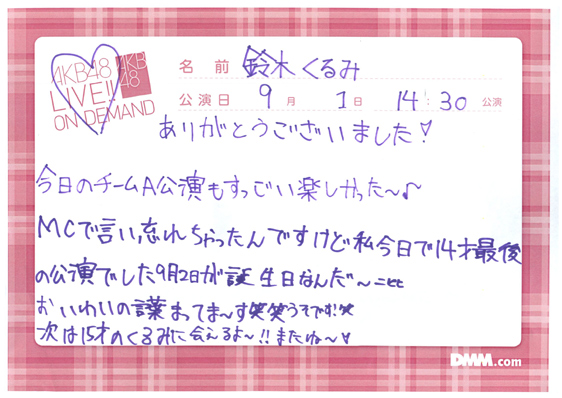 AKB48
LIVE!!
ON DEMAND
AKB
48
名前 鈴木くるみ
公演日 9月 1日 14:30 公演
ありがとうございました♡
今日のチームA公演もすっごい楽しかった〜♪
MCで言い忘れちゃったんですけど私今日で14才最後
の公演でした9月2日が誕生日なんだ〜
おいわいの言葉まってま〜す笑笑うそです!笑
次は15才のくるみに会えるよ〜!!またね〜♡
DMM.com